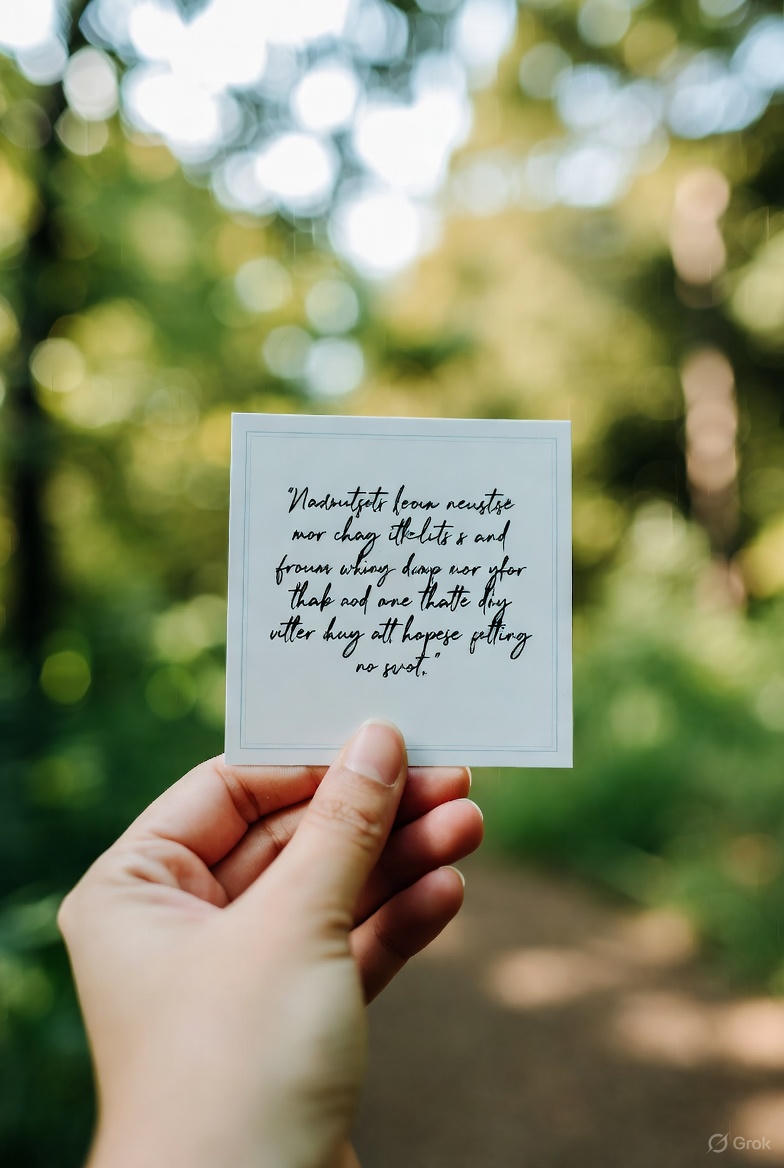 "Nadmutsets keoun neustse
mor chag itkelits s and
froum whiny dimp mor yfor
thab aod one thatte diy
vitter huy att hopese felting
no svot."
Grok